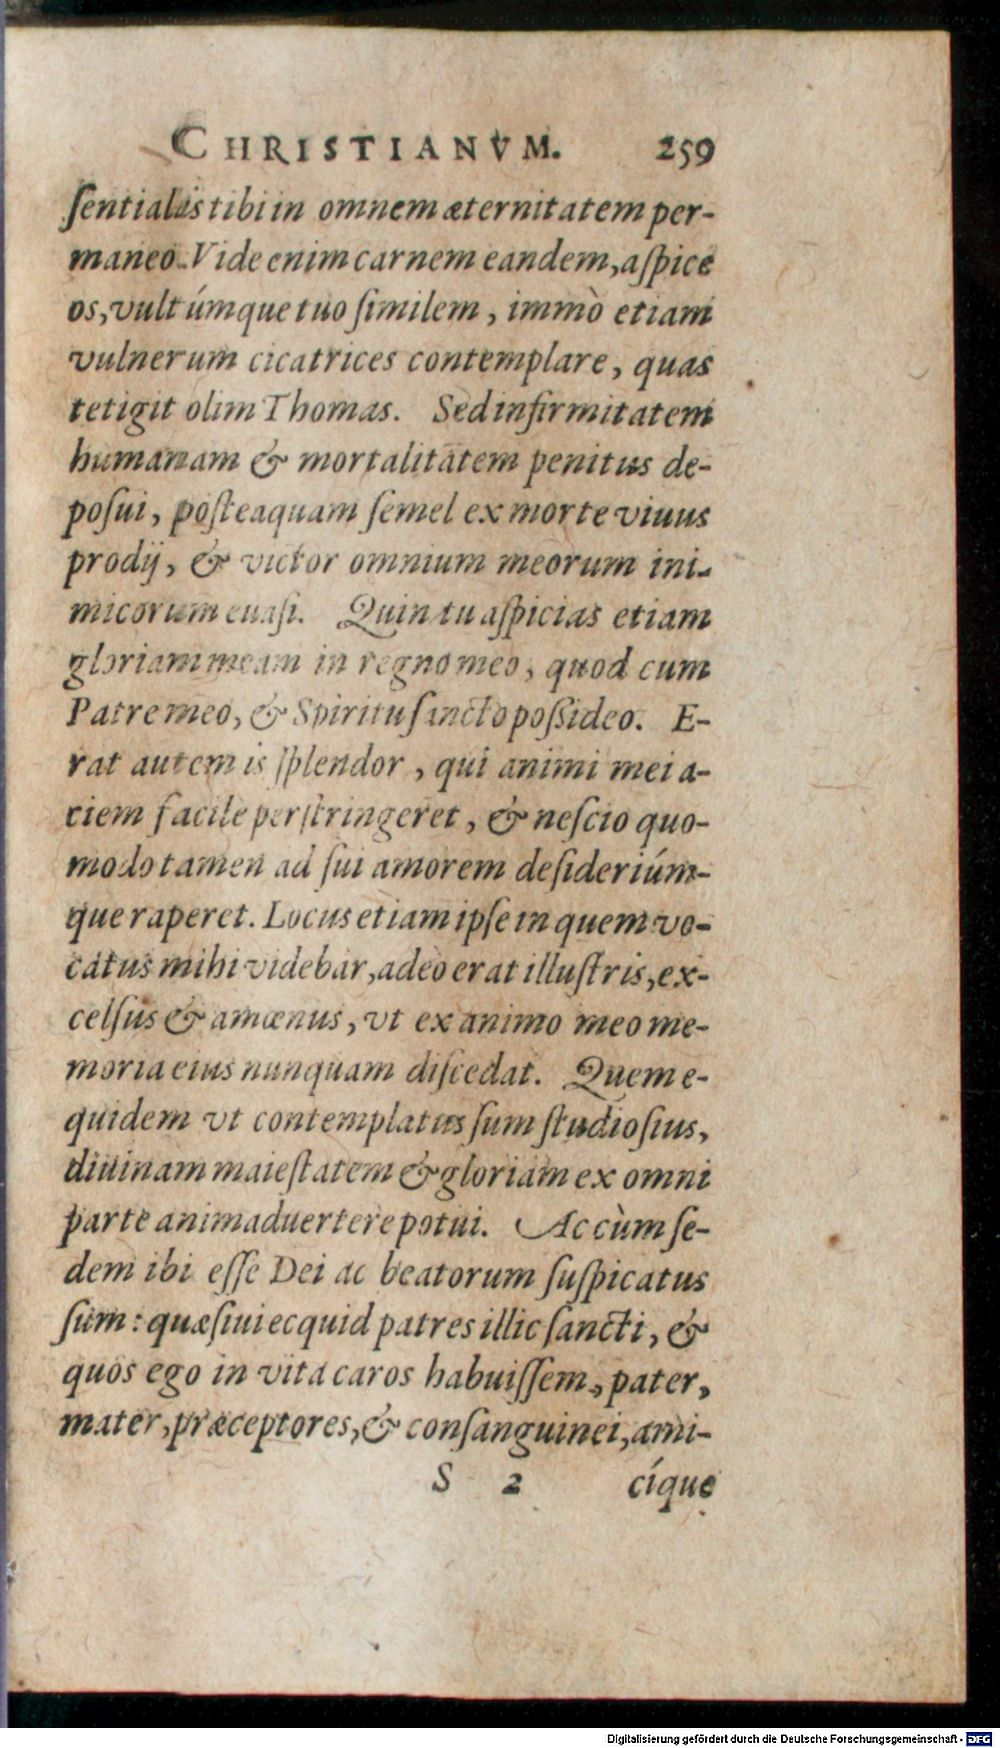 CHRISTIANVM. 259
ſentialis tibi in omnem æternitatem per-
maneo. Vide enim carnem eandem, aſpice
os, vultúmque tuo ſimilem, immò etiam
vulnerum cicatrices contemplare, quas
tetigit olim Thomas. Sed infirmitatem
humanam & mortalitatem penitus de-
poſui, poſteaquam ſemel ex morte viuus
prodij, & victor omnium meorum ini-
micorum euaſi. Quin tu aſpicias etiam
gloriam meam in regno meo, quod cum
Patre meo, & Spiritu ſancto poſsideo. E-
rat autem is ſplendor, qui animi mei a-
ciem facile perſtringeret, & neſcio quo-
modo tamen ad ſui amorem deſideriúm-
que raperet. Locus etiam ipſe in quem vo-
catus mihi videbar, adeo erat illuſtris, ex-
celſus & amœnus, vt ex animo meo me-
moria eius nunquam diſcedat. Quem e-
quidem vt contemplatus ſum ſtudioſius,
diuinam maieſtatem & gloriam ex omni
parte animaduertere potui. Ac cùm ſe-
dem ibi eſſe Dei ac beatorum ſuſpicatus
ſum: quæſiui ecquid patres illic ſancti, &
quos ego in vita caros habuiſſem, pater,
mater, præceptores, & conſanguinei, ami-
S 2 cíque
Digitalisierung gefördert durch die Deutsche Forschungsgemeinschaft - DFG